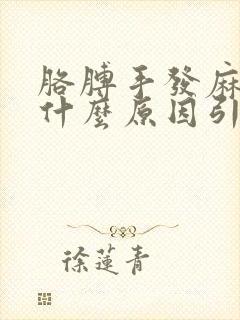 胳膊手發麻
什麼原因引
徐蓮青